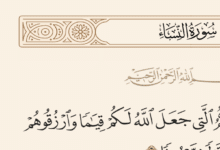 سُورَةُ النِّسَاءِ
بِسْمِ اللَّهِ الرَّحْمَٰنِ الرَّحِيمِ
ٱلَّتِي جَعَلَ ٱللَّهُ لَكُمْ قِيَٰمًا وَٱرْزُقُوهُمْ